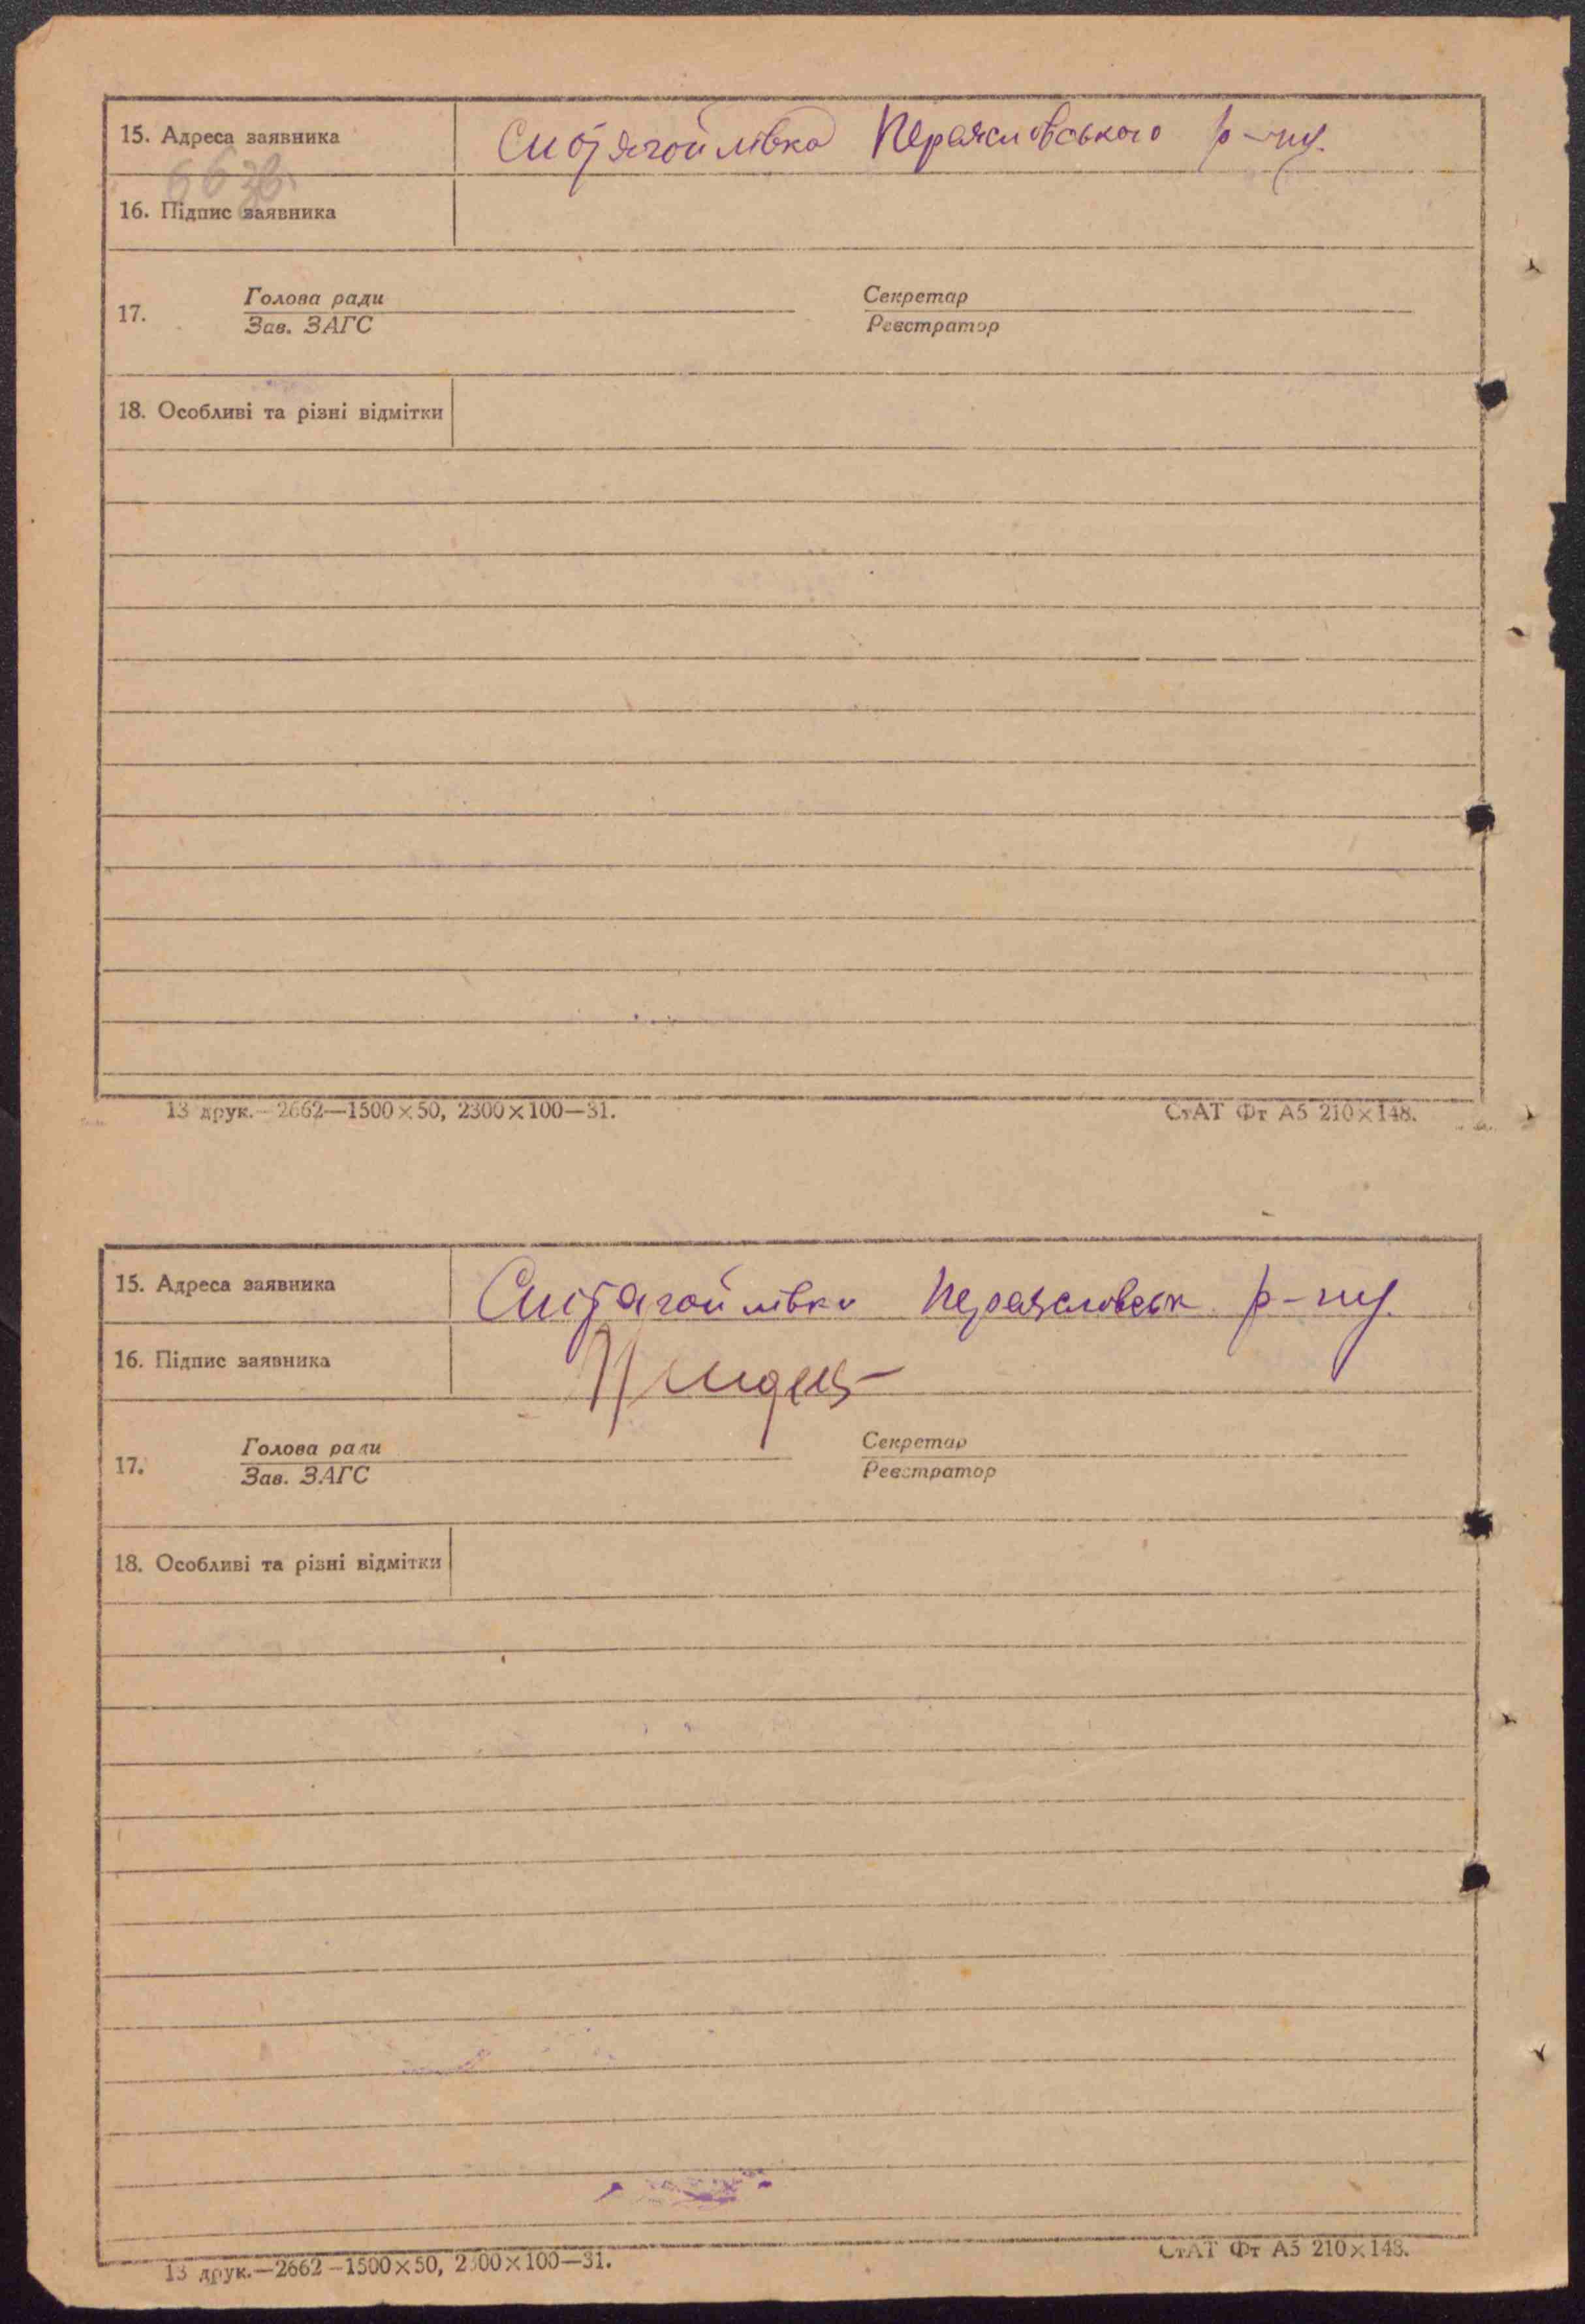 15. Адреса заявника Переяславського р-ну.
16. Підпис заявника
17. Голова ради Секретар
Зав. ЗАГС Реєстратор
18. Особливі та різні відмітки
13 друк.—2662—1500×50, 2300×100—31. СтАТ Фт А5 210×148.
15. Адреса заявника р-ну.
16. Підпис заявника
17. Голова ради Секретар
Зав. ЗАГС Реєстратор
18. Особливі та різні відмітки
13 друк.—2662—1500×50, 2300×100—31. СтАТ Фт А5 210×148.